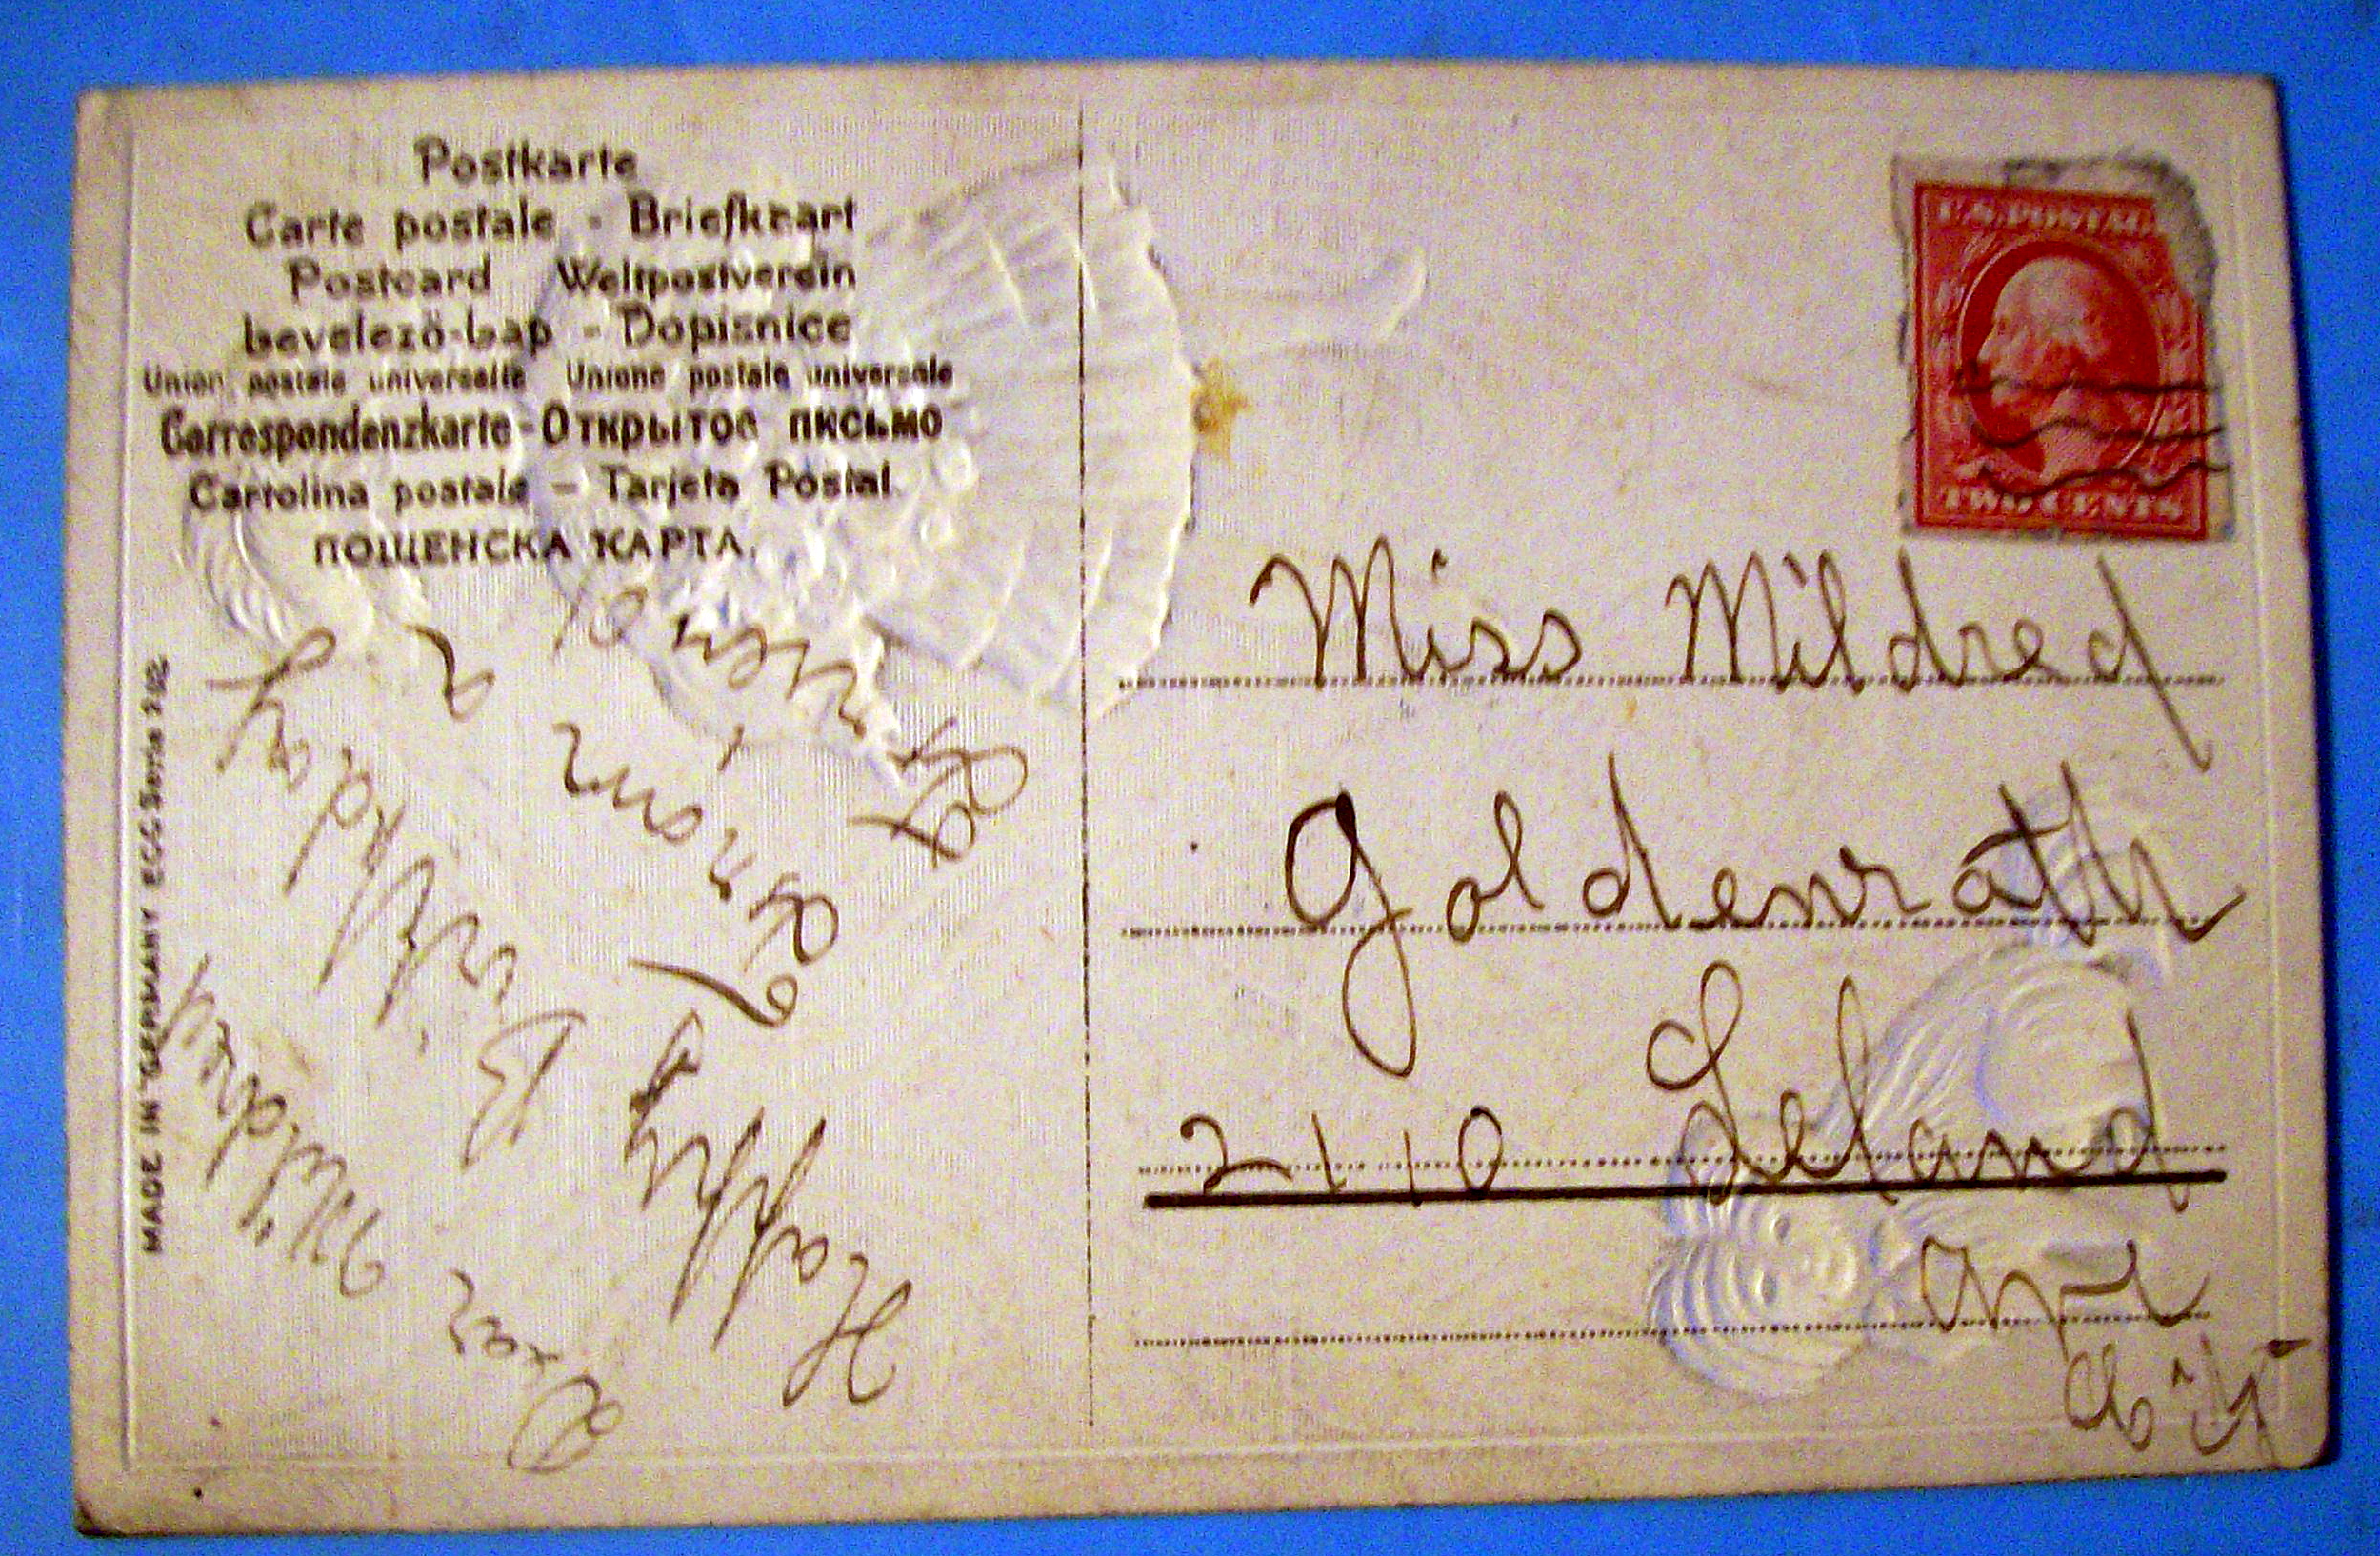 Postkarte
Carte postale - Briefkaart
Postcard Weltpostverein
Levelező-Lap - Dopisnice
Union postale universelle Unione postale universale
Correspondenzkarte - Открытое письмо
Cartolina postale - Tarjeta Postal.
ПОЩЕНСКА КАРТА.
MADE IN GERMANY EGG Serie 202
U.S. POSTAGE
TWO CENTS
Miss Mildred
Goldenrath
2110 Leland
Ave
City
Dear Mildred
Happy Birthday
From
a
Friend